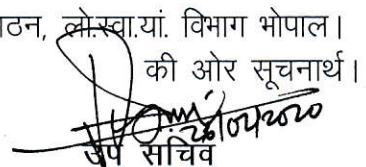 ठन, लो.स्वा.यां. विभाग भोपाल।
की ओर सूचनार्थ।
26/02/2020
उप सचिव